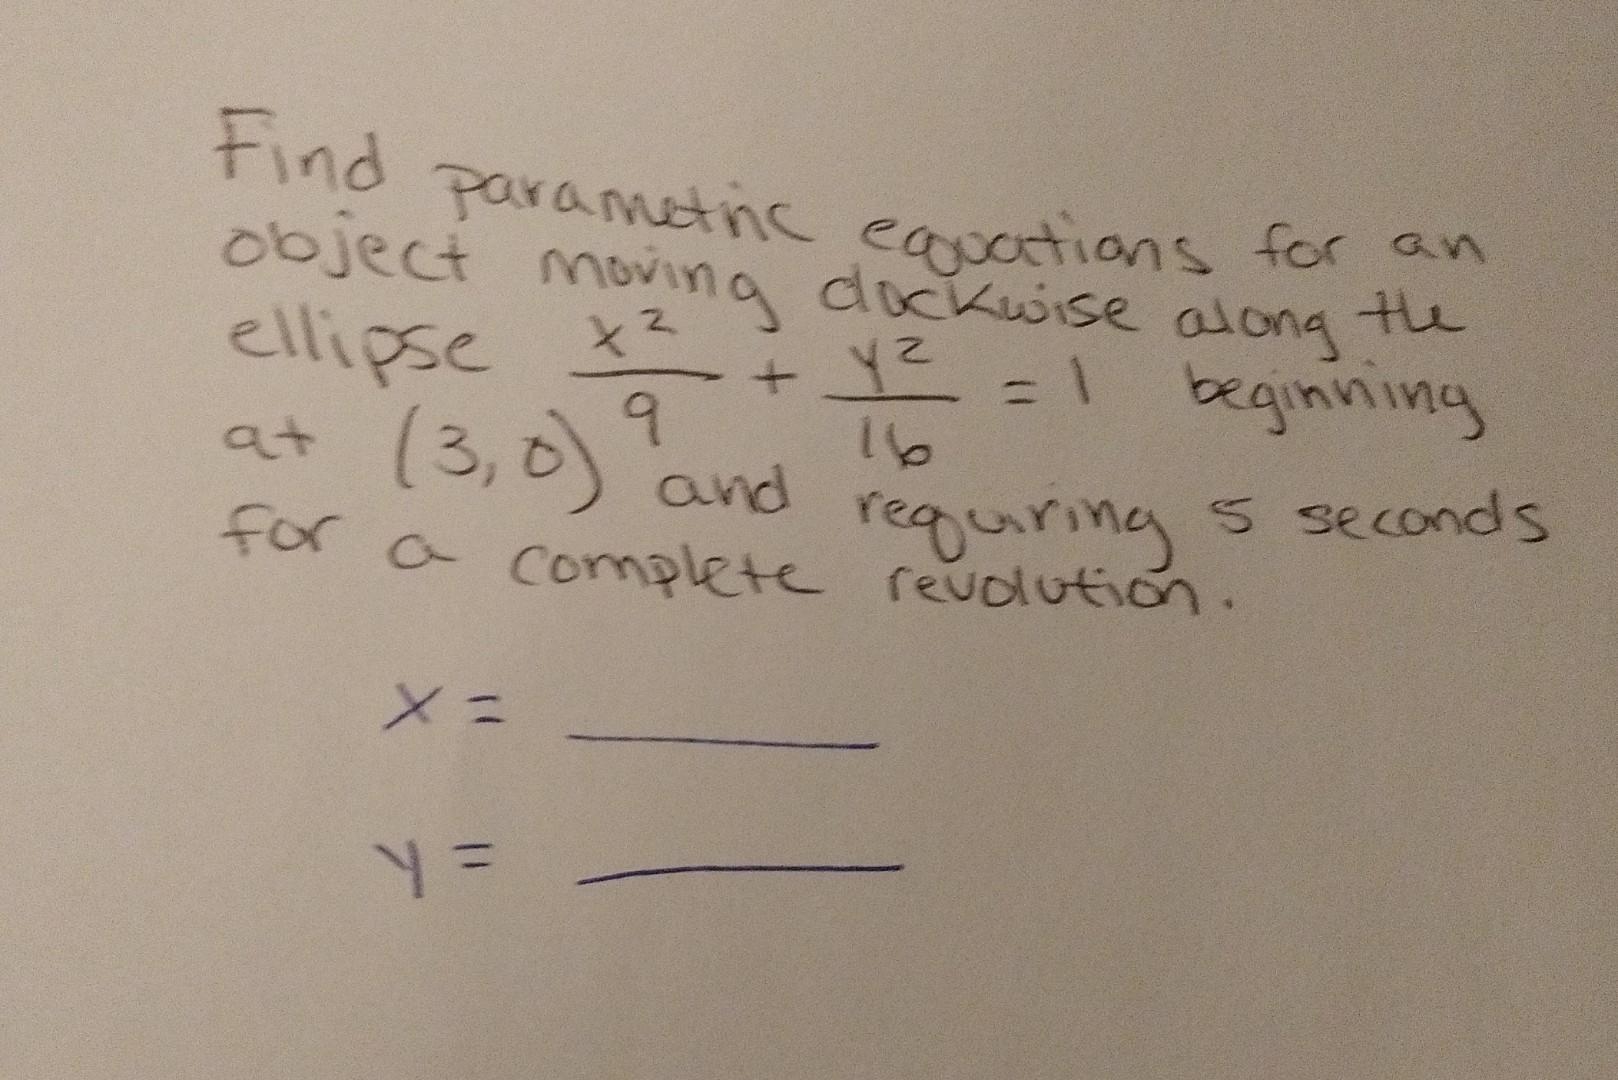 Find parametric equations for an
object moving clockwise along the
ellipse x²/9 + y²/16 = 1 beginning
at (3,0) and requiring 5 seconds
for a complete revolution.
x = ____
y = ____